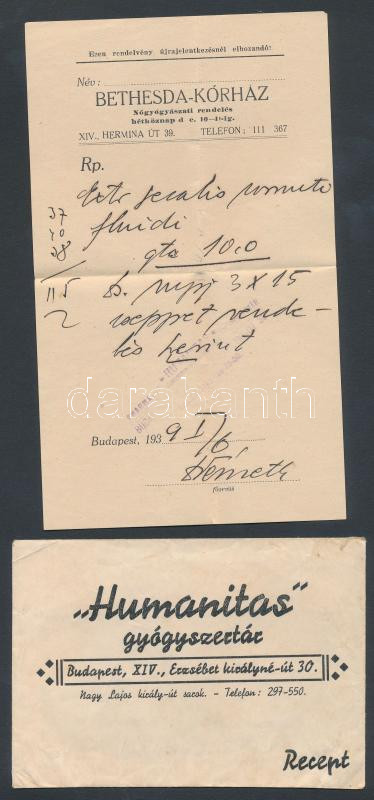 Ezen rendelvény újrajelentkezésnél elhozandó!
Név:
BETHESDA-KÓRHÁZ
Nőgyógyászati rendelés
hétköznap d e. 10—11-ig.
XIV., HERMINA ÚT 39. TELEFON: 111 367
Rp.
Extr secalis cornuti
37 fluidi
40
38 gta 10.0
115 S. napj 3 X 15
2 cseppet rende-
lés szerint
Budapest, 1939 I/6
Németh
főorvos
darabanth
"Humanitas"
gyógyszertár
Budapest, XIV., Erzsébet királyné-út 30.
Nagy Lajos király-út sarok. - Telefon: 297-550.
Recept